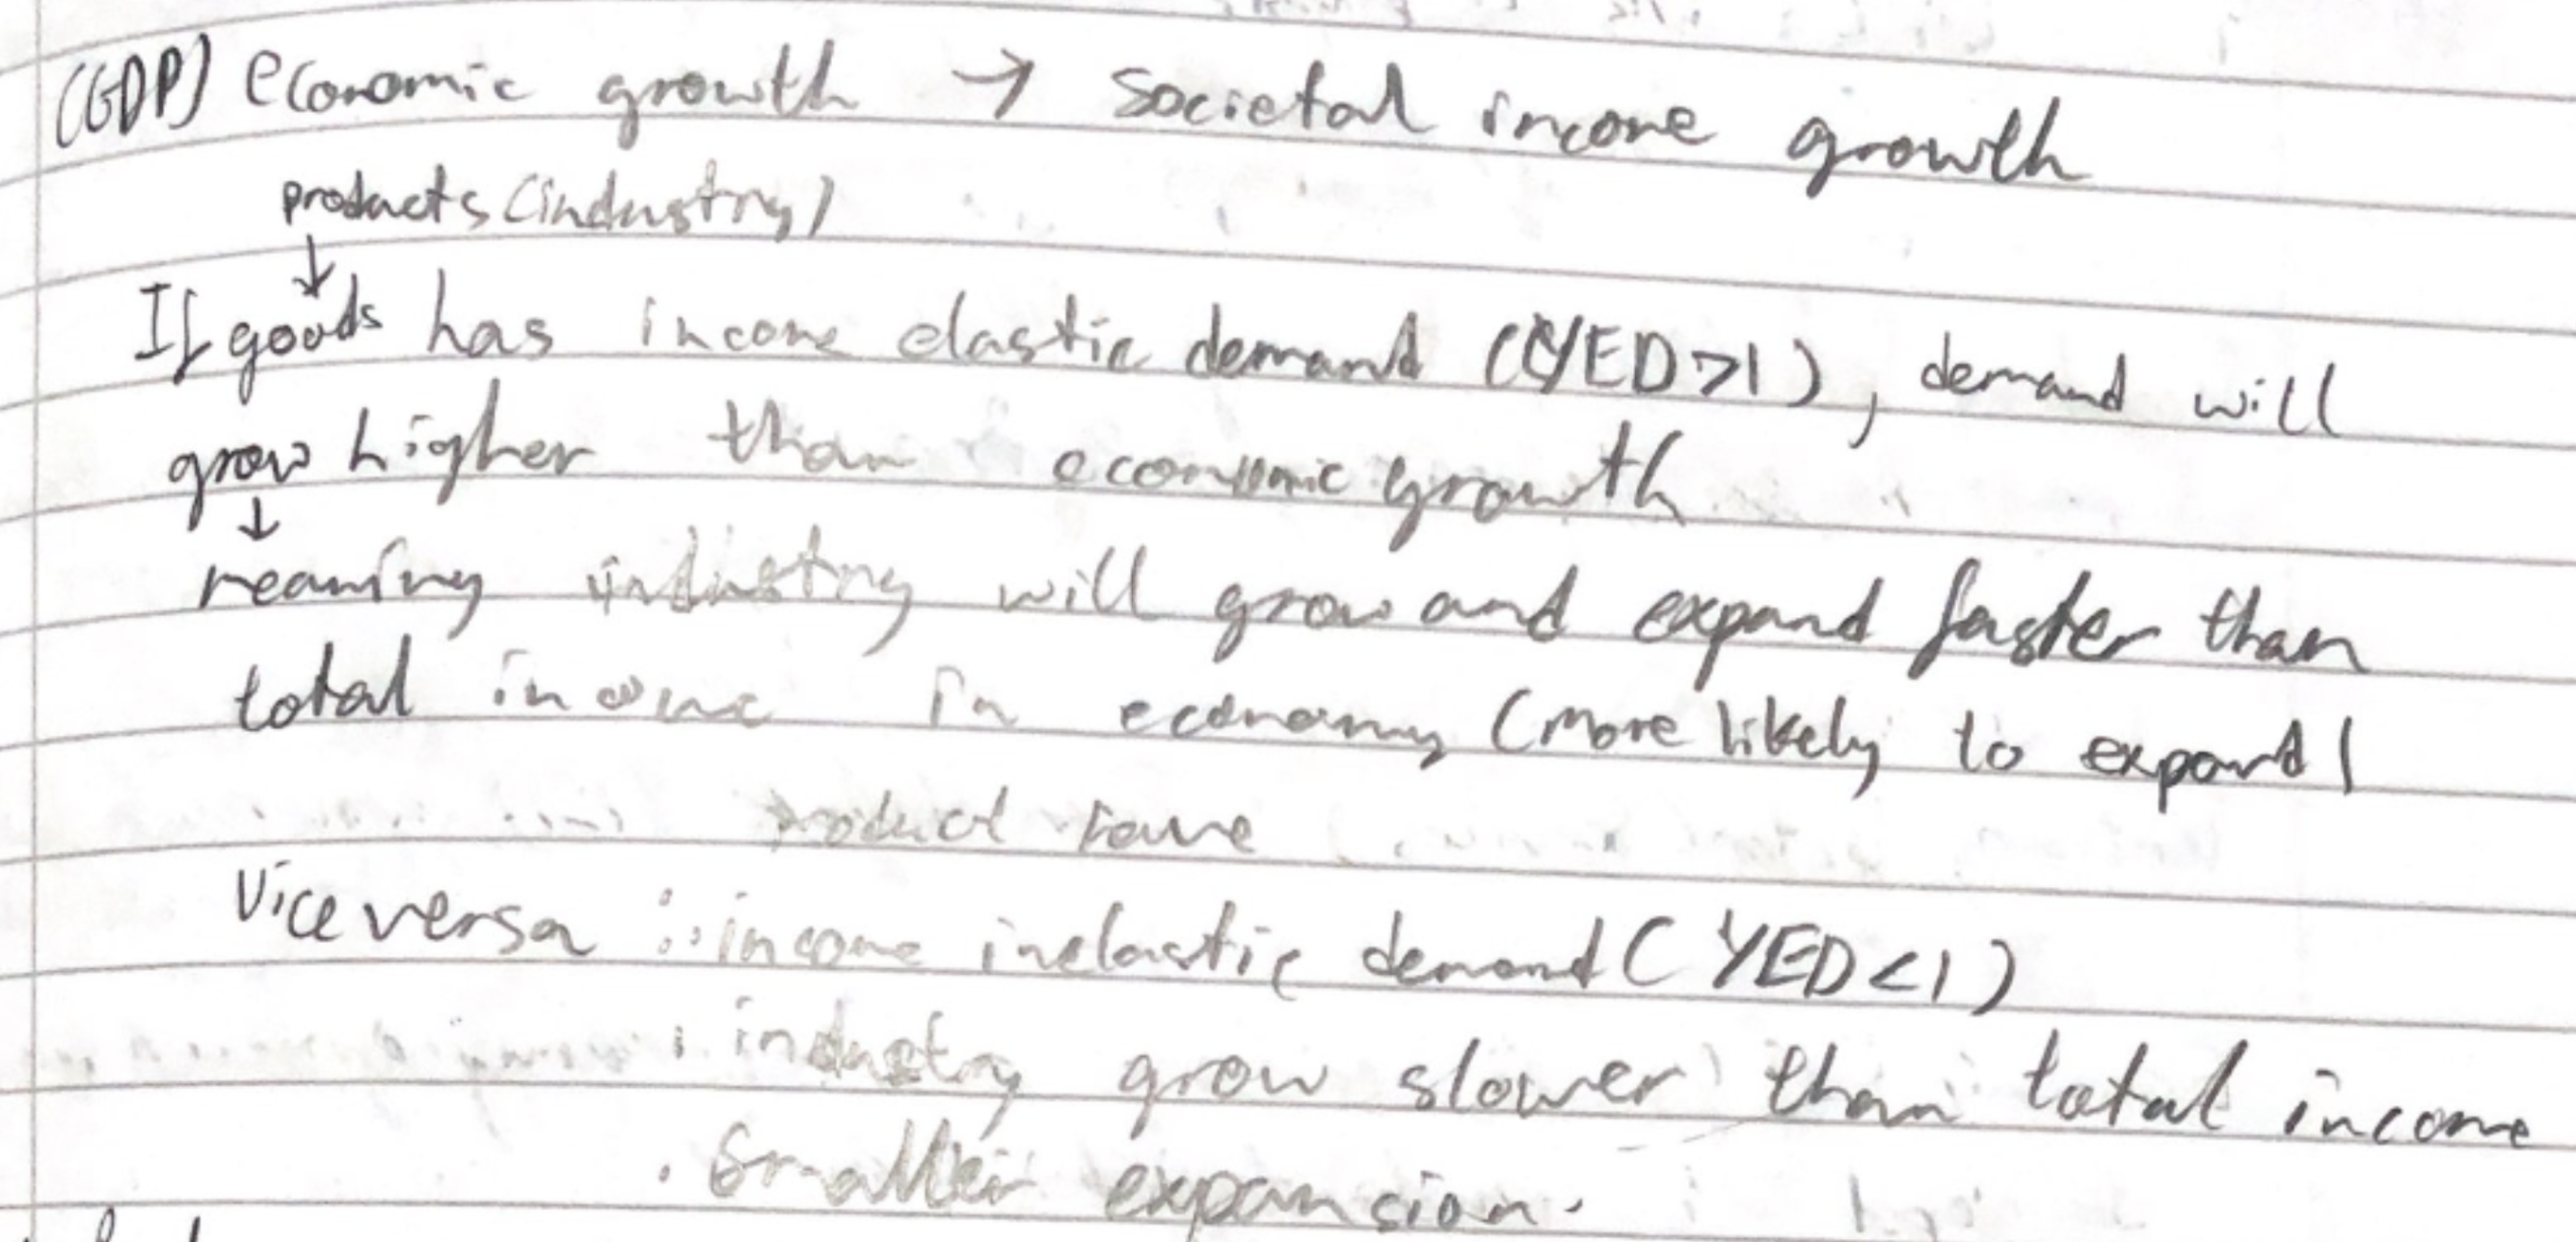 (GDP) economic growth → societal income growth
products (industry)
↓
If goods has income elastic demand (YED>1), demand will
grow higher than economic growth
↓
meaning industry will grow and expand faster than
total income in economy (more likely to expand)
product have
Vice versa : income inelastic demand ( YED<1 )
. industry grow slower than total income
. Smaller expansion.